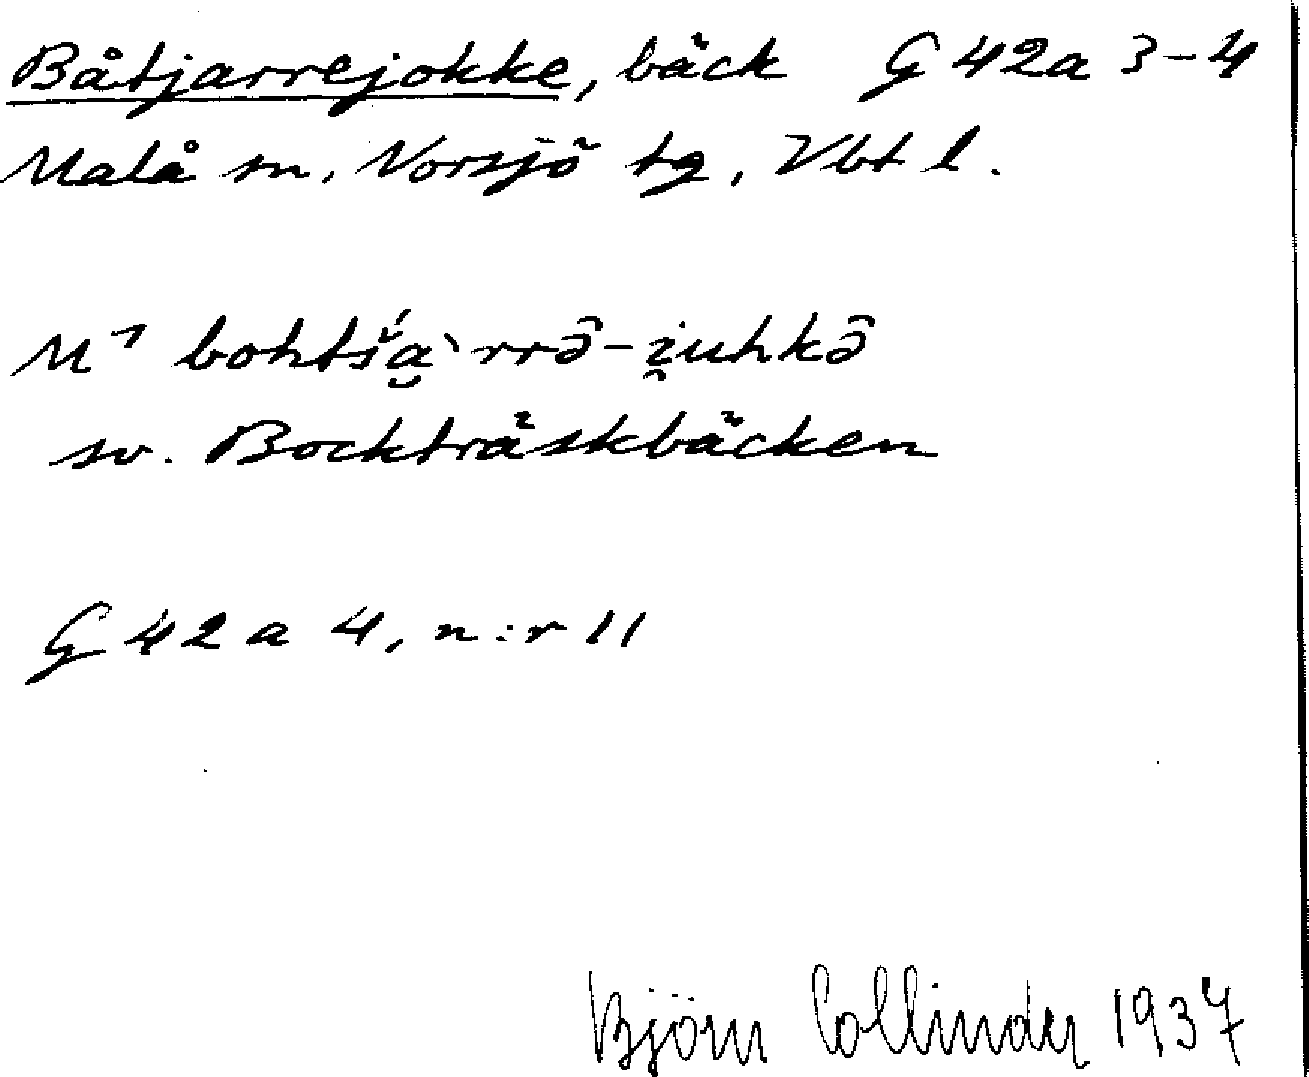 Båtjarrejokke, bäck G 42a 3-4
Malå sn, Norsjö tg, Vbt l.
M⁷ bohtš́a̮`rrə̂-i̯uhkə̂
sv. Bockträskbäcken
G 42 a 4, n:r 11
Björn Collinder 1937